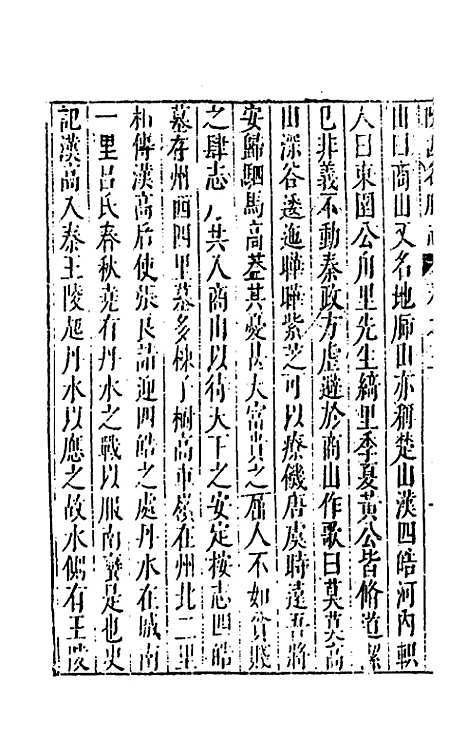 山曰商山又名地肺山亦稱楚山漢四皓河內軹
人曰東園公甪里先生綺里季夏黃公皆脩道潔
已非義不動秦政方虐避於商山作歌曰莫莫高
山深谷逶迤曄曄紫芝可以療饑唐虞時遠吾將
安歸駟馬高蓋其憂甚大富貴之畱人不如貧賤
之肆志 共入商山以待天下之安定按志四皓
墓存州西四里墓多棟了樹高車嶺在州北二里
相傳漢高后使張良詣迎四皓之處丹水在城南
一里呂氏春秋堯有丹水之戰以服南蠻是也史
記漢高入秦王陵起丹水以應之故水側有王陵